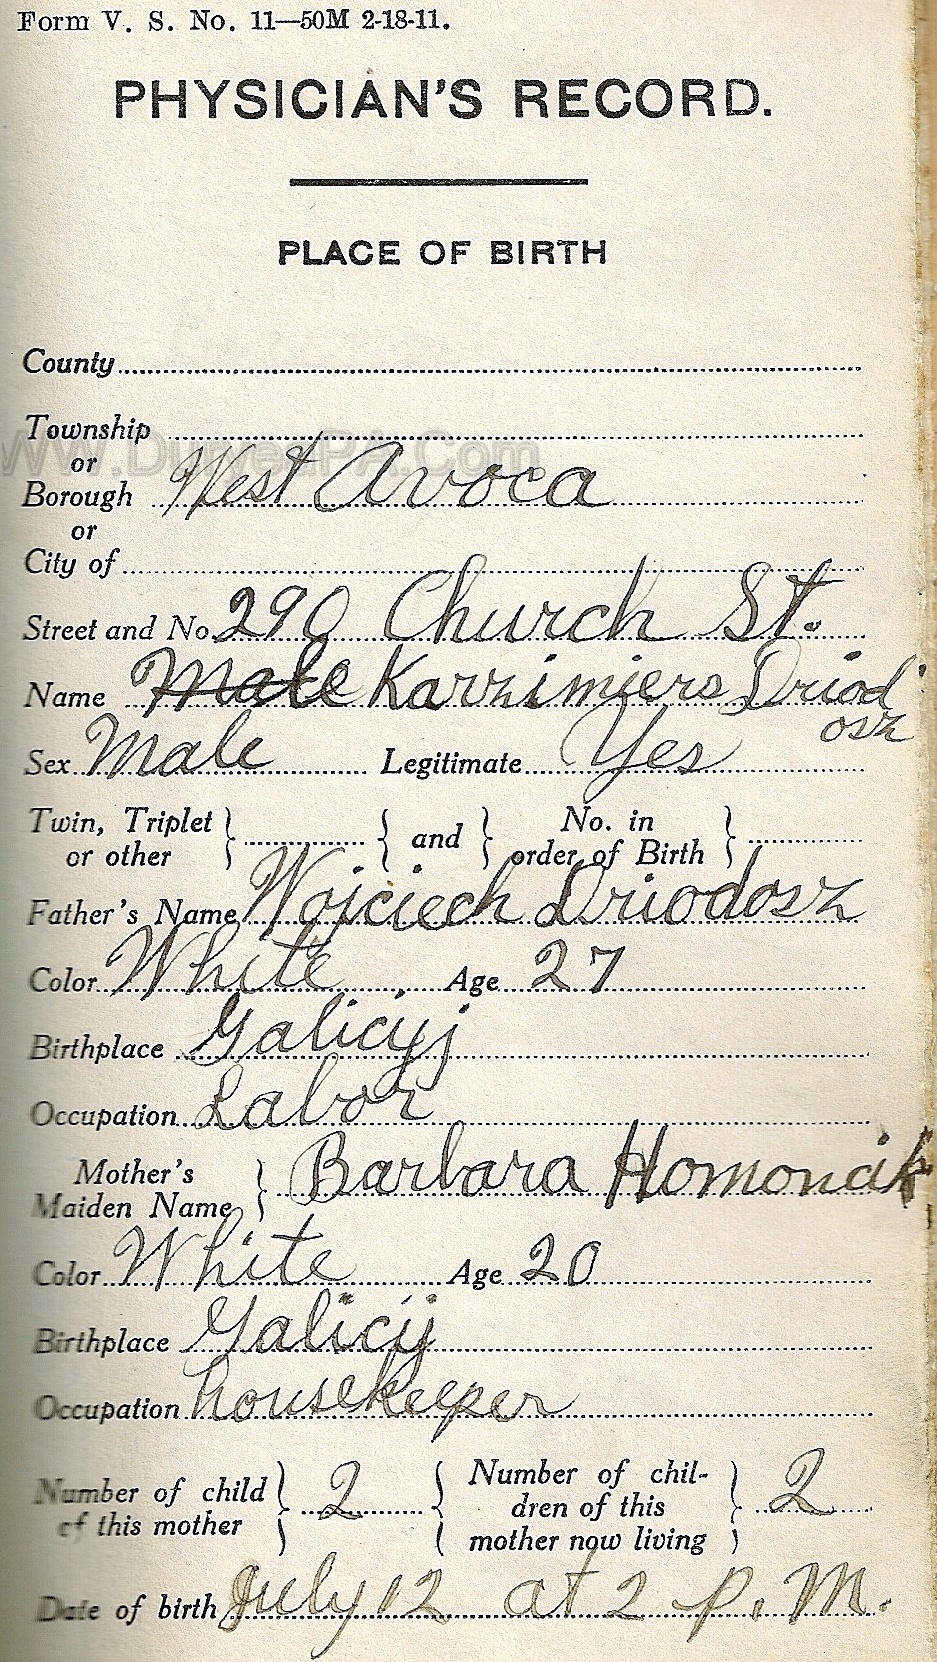 Form V. S. No. 11—50M 2-18-11.
PHYSICIAN'S RECORD.
PLACE OF BIRTH
County
Township
or
Borough West Avoca
or
City of
Street and No. 290 Church St.
Name Male Karzimiers Driod
osz
Sex Male Legitimate Yes
Twin, Triplet or other } { and } No. in order of Birth }
Father's Name Wojciech Driodosz
Color White Age 27
Birthplace Galicyj
Occupation Labor
Mother's Maiden Name } Barbara Homoniak
Color White Age 20
Birthplace Galicij
Occupation housekeeper
Number of child of this mother } 2 { Number of children of this mother now living } 2
Date of birth July 12 at 2 P. M.